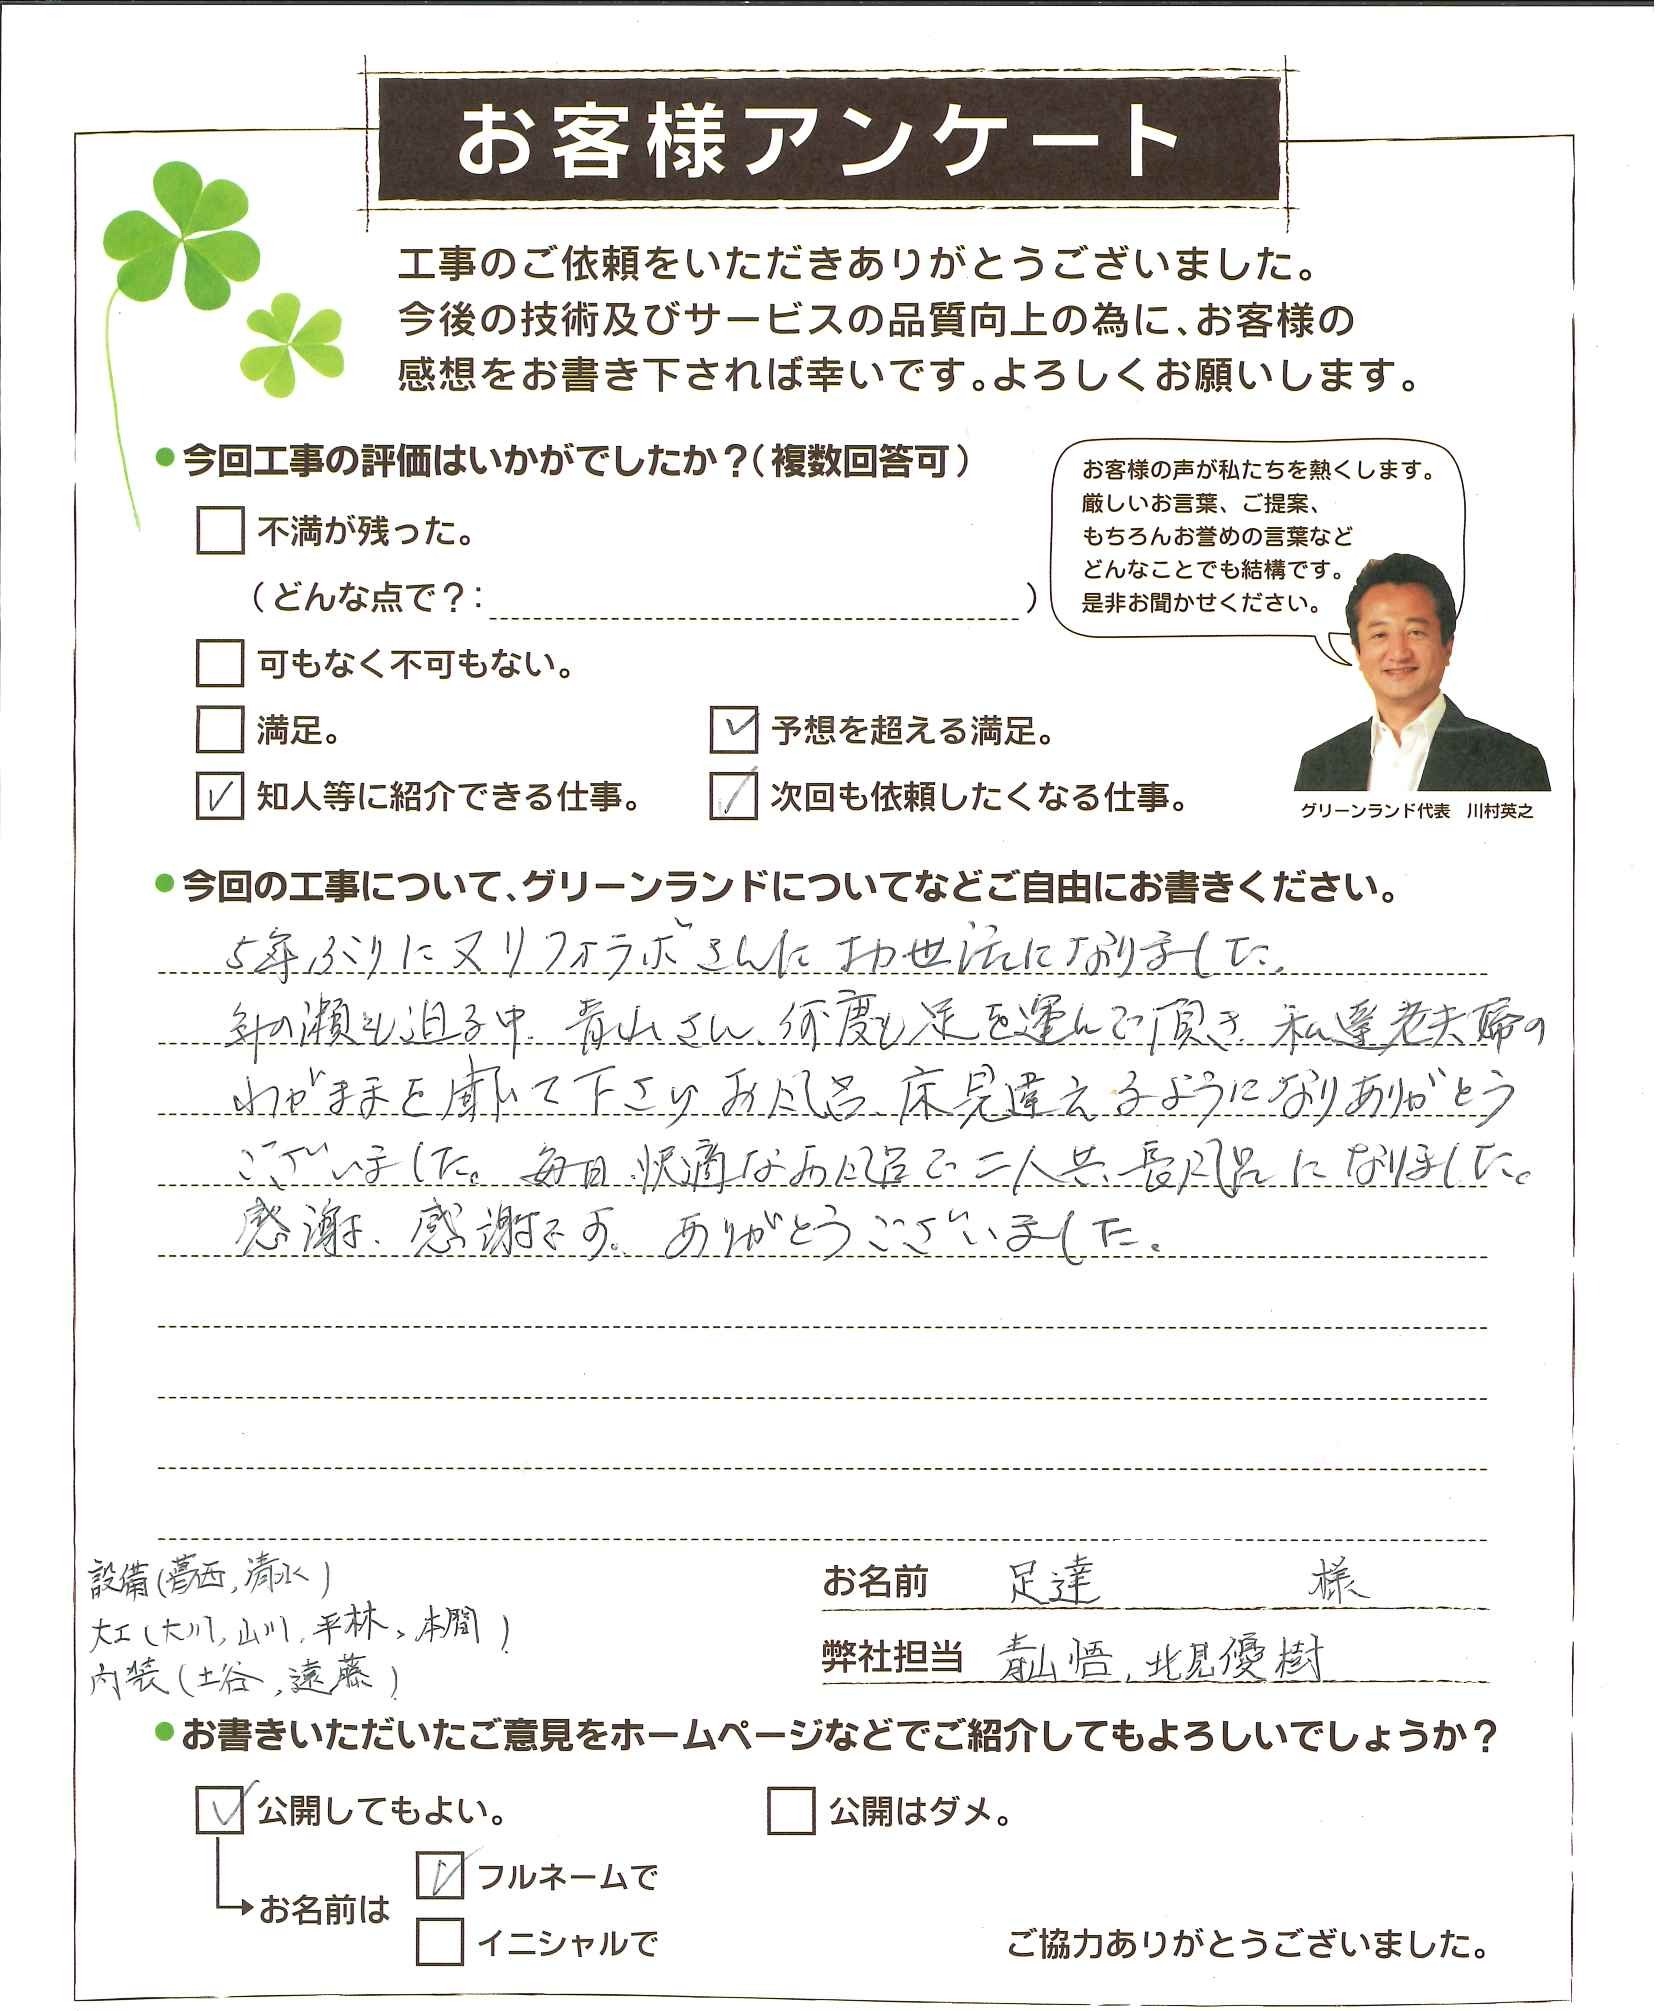 お客様アンケート
工事のご依頼をいただきありがとうございました。
今後の技術及びサービスの品質向上の為に、お客様の
感想をお書き下されば幸いです。よろしくお願いします。
●今回工事の評価はいかがでしたか？（複数回答可）
不満が残った。
（どんな点で？：　　　　　　）
可もなく不可もない。
満足。
予想を超える満足。
知人等に紹介できる仕事。
次回も依頼したくなる仕事。
お客様の声が私たちを熱くします。
厳しいお言葉、ご提案、
もちろんお誉めの言葉など
どんなことでも結構です。
是非お聞かせください。
グリーンランド代表　川村英之
●今回の工事について、グリーンランドについてなどご自由にお書きください。
5年ぶりに又リフォラボさんにお世話になりました。
年の瀬も迫る中、青山さん、何度も足を運んで頂き、私達老夫婦の
わがままを聞いて下さりお風呂、床見違えるようになりありがとう
ございました。毎日快適なお風呂で二人共、長風呂になりました。
感謝、感謝です。ありがとうございました。
設備(葛西,清水)
大工(大川,山川,平林、本間)
内装(土谷,遠藤)
お名前　足達　様
弊社担当　青山悟,北見優樹
●お書きいただいたご意見をホームページなどでご紹介してもよろしいでしょうか？
公開してもよい。
公開はダメ。
お名前は
フルネームで
イニシャルで
ご協力ありがとうございました。